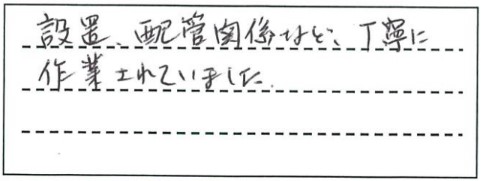 設置、配管関係など、丁寧に
作業されていました。